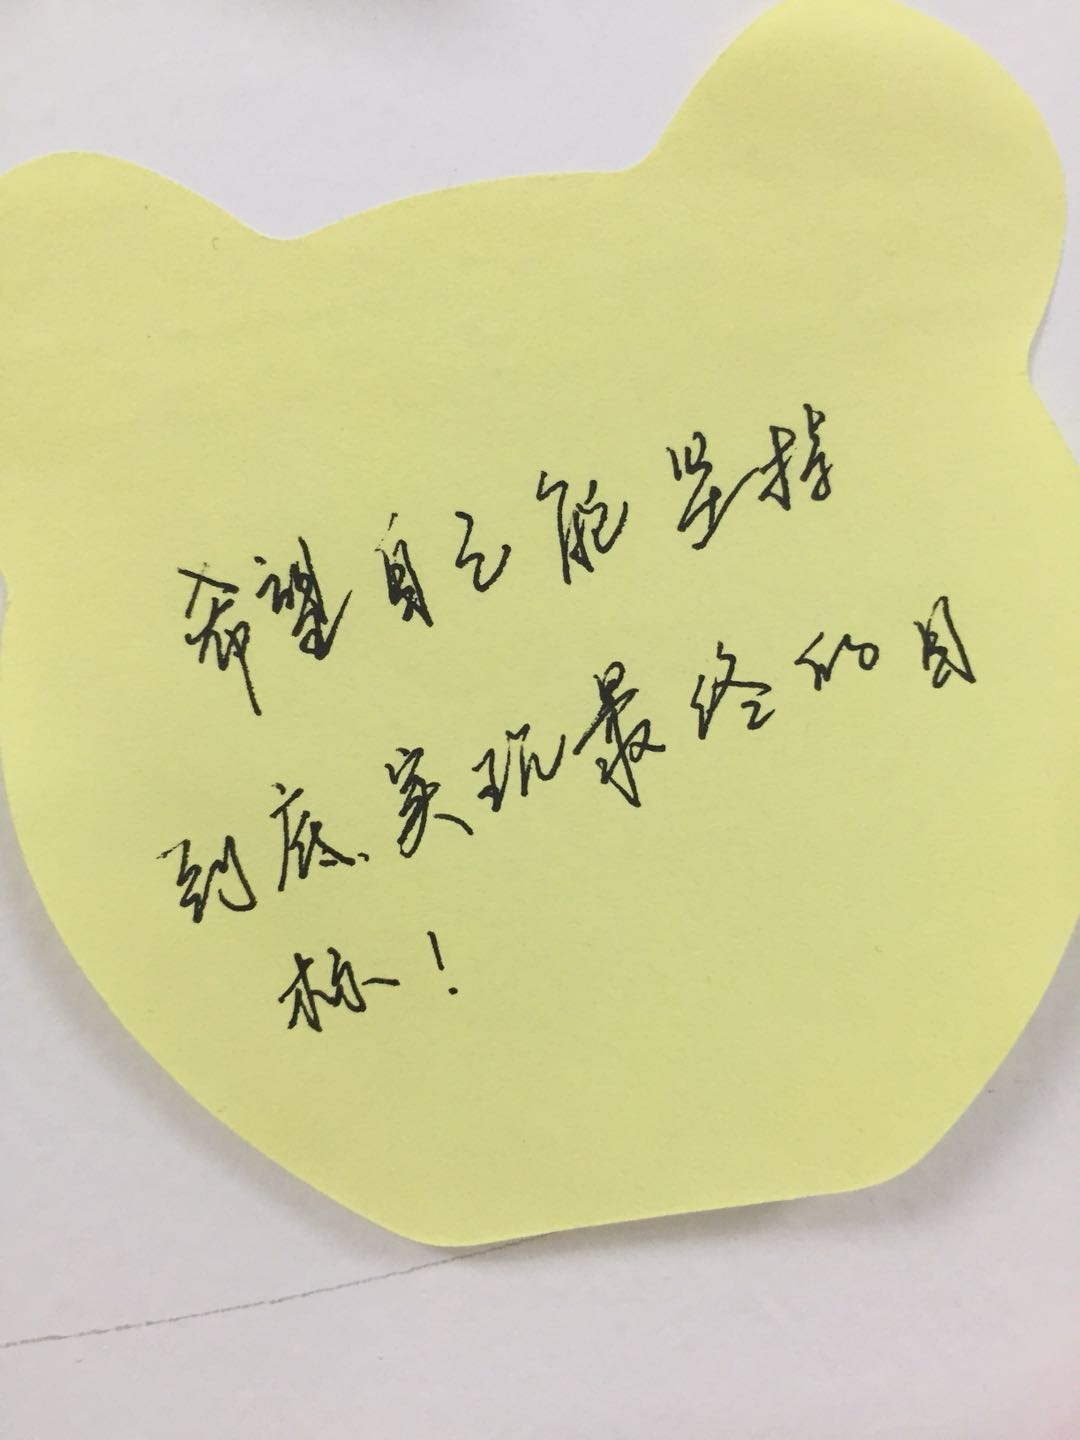 希望自己能坚持
到底、实现最终的目
标！